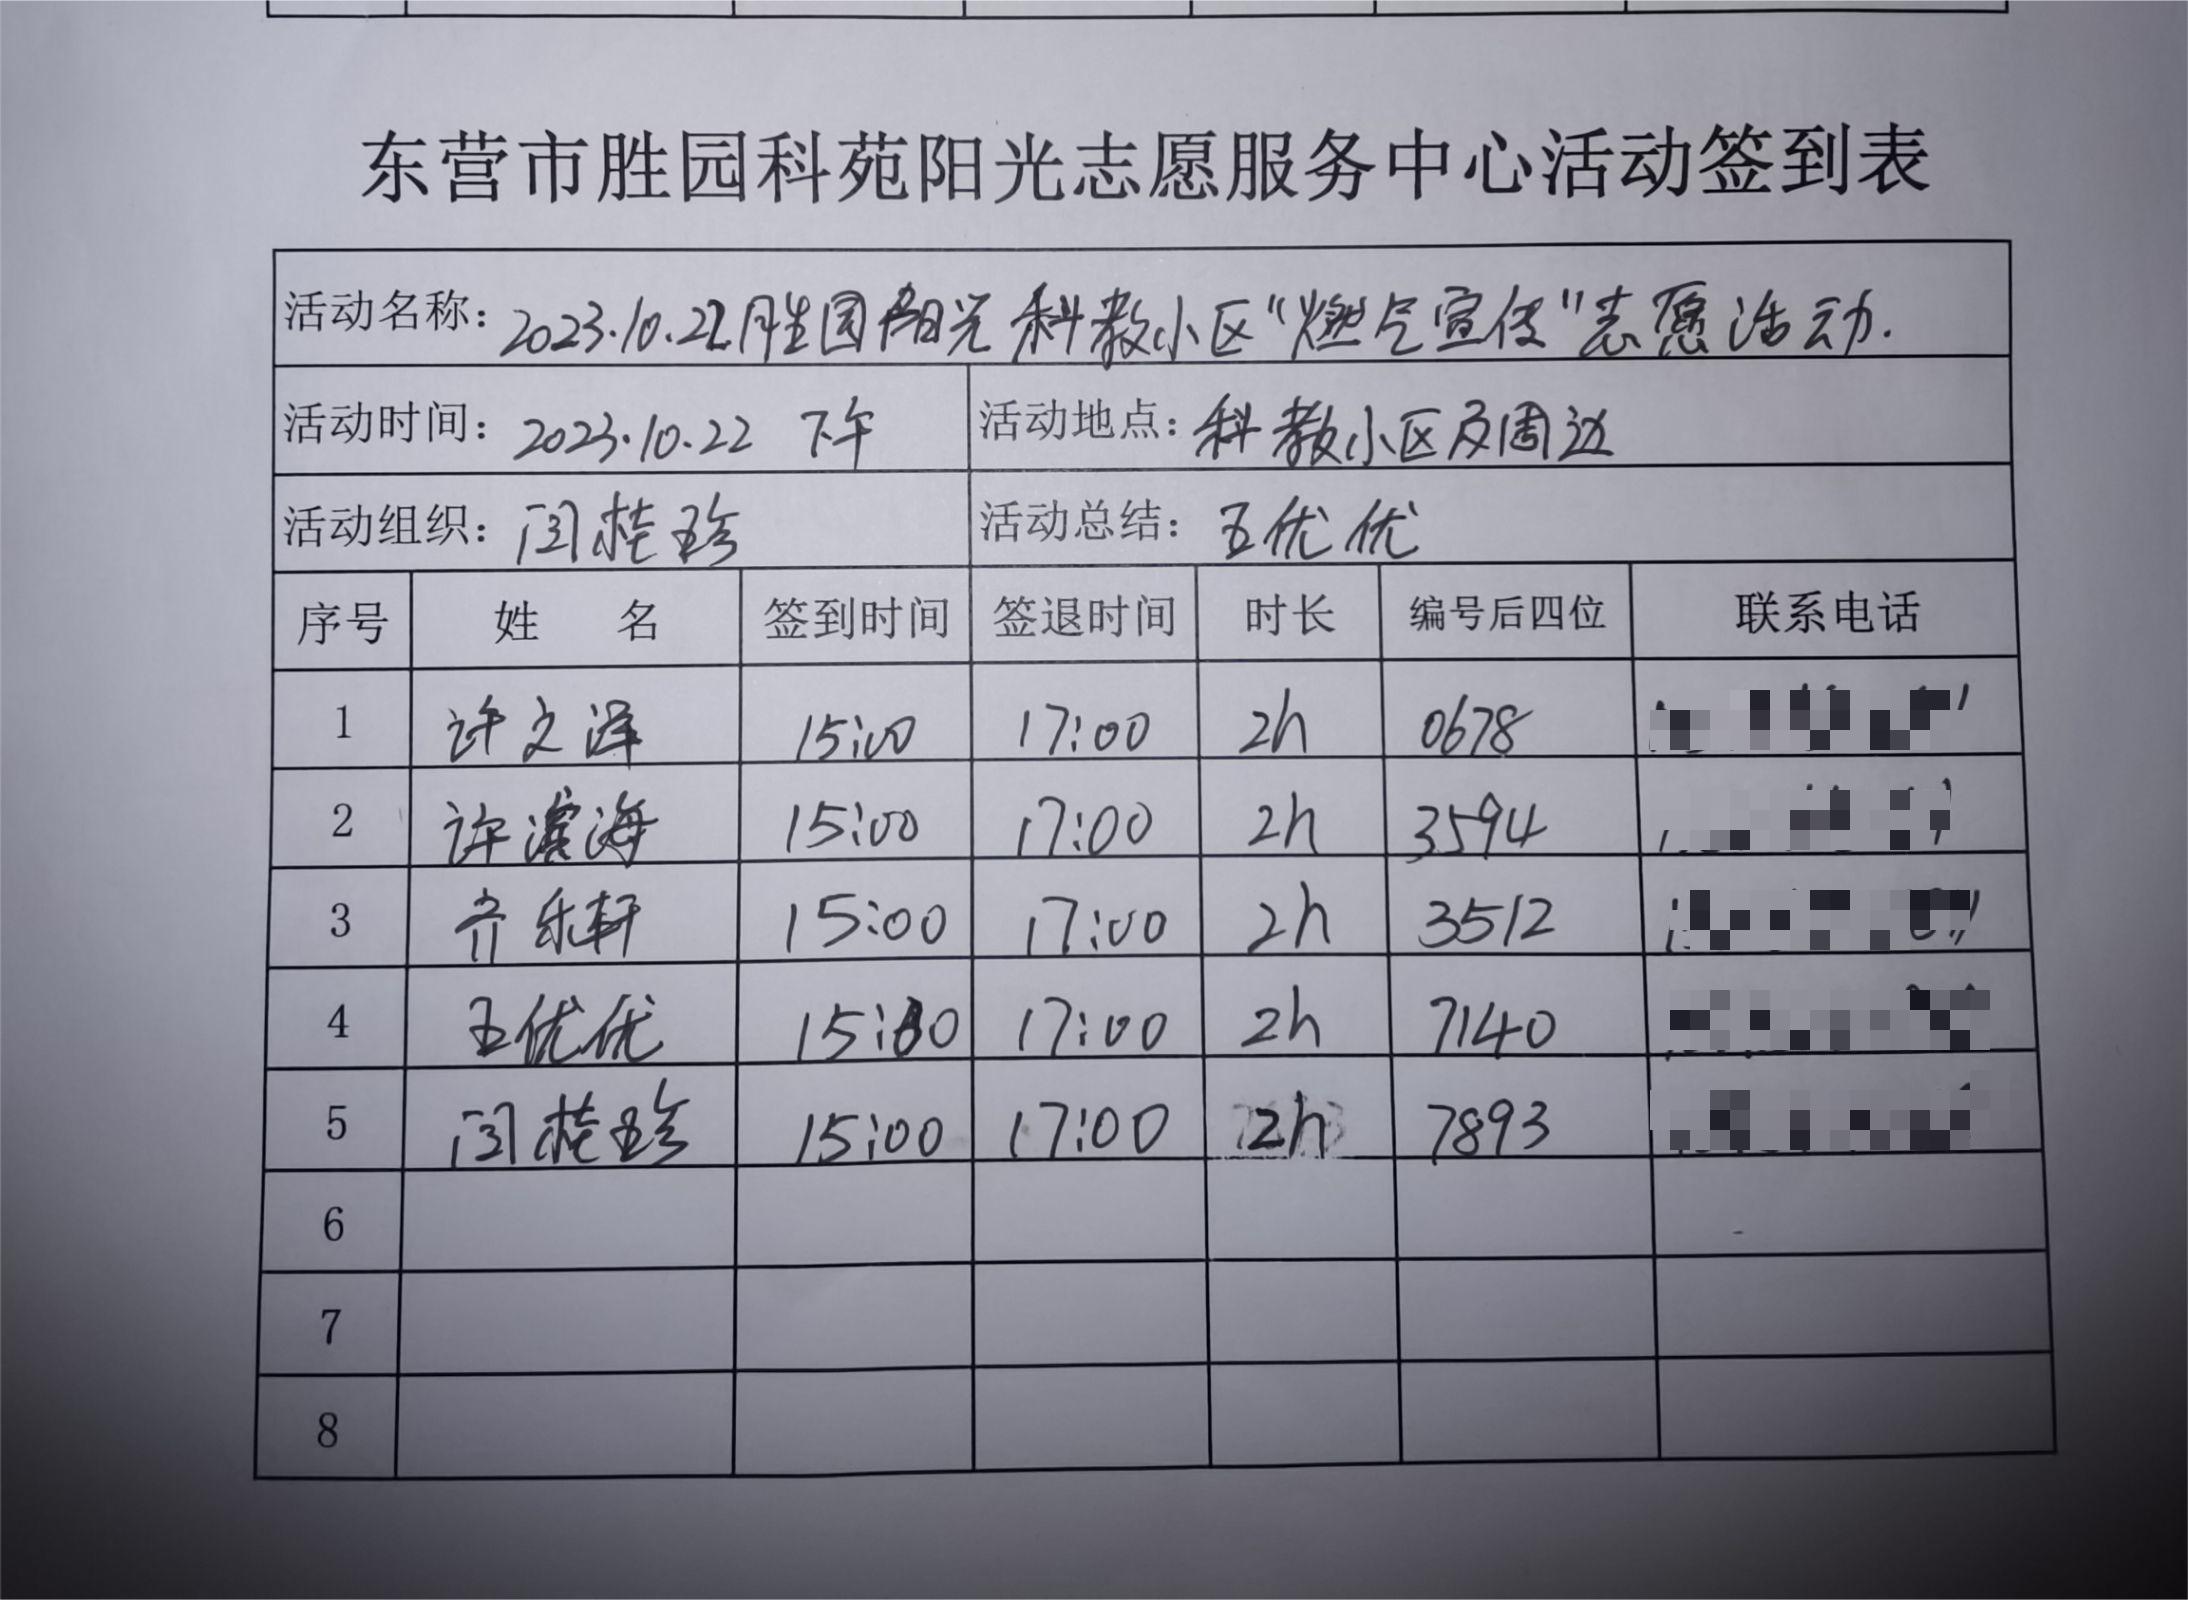 东营市胜园科苑阳光志愿服务中心活动签到表
活动名称：2023.10.22胜园阳光科教小区“燃气宣传”志愿活动.
活动时间：2023.10.22 下午 活动地点：科教小区及周边
活动组织：闫桂珍 活动总结：王优优
序号 姓 名 签到时间 签退时间 时长 编号后四位 联系电话
1 许文洋 15:00 17:00 2h 0678
2 许滨海 15:00 17:00 2h 3594
3 齐乐轩 15:00 17:00 2h 3512
4 王优优 15:00 17:00 2h 7140
5 闫桂珍 15:00 17:00 2h 7893
6
7
8